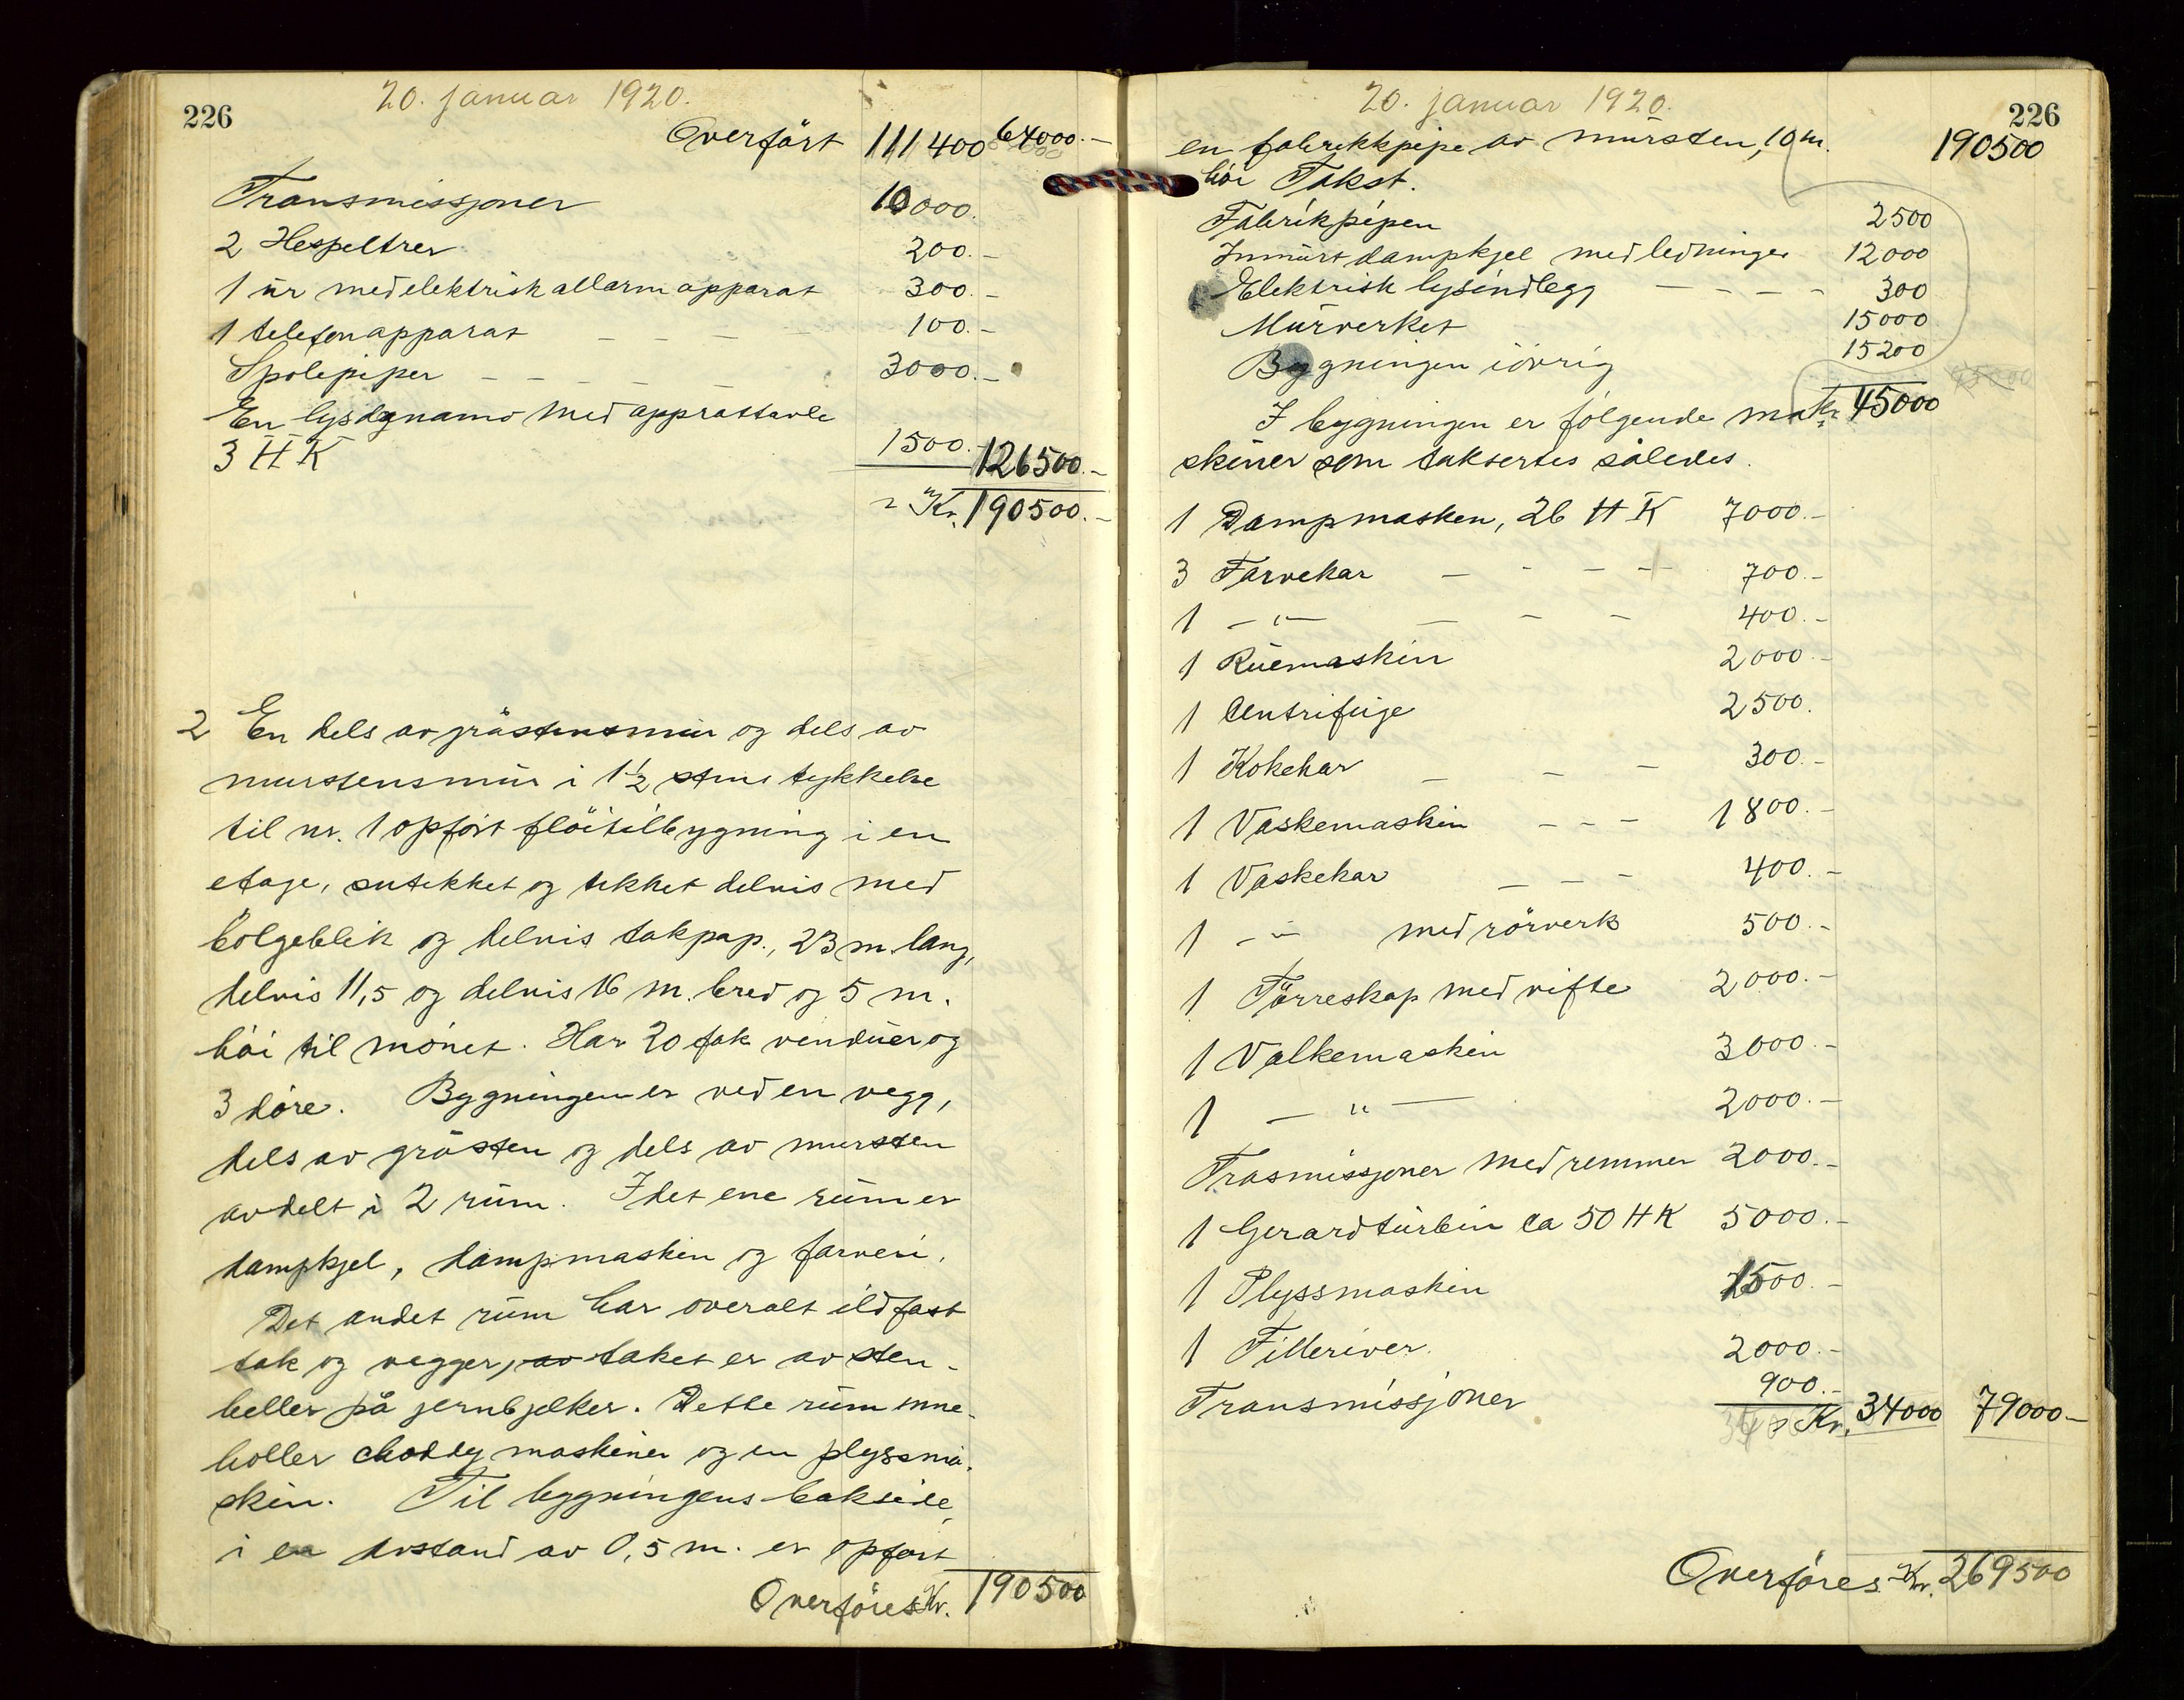 226
20. januar 1920.
Overført 111 400 64000.-
Transmissjoner 10000.
2 Hespeltrer 200.-
1 ur med elektrisk allarm apparat 300.-
1 telefonapparat - - - 100.-
Spolepiper - - - - - 3000.-
En lysdynamo med apprattavle
3 HK 1500.- 126500.-
Kr. 190500.-
2 En dels av gråstensmur og dels av
murstensmur i 1½ stens tykkelse
til nr. 1 opført flöitilbygning i en
etage, sutekket og tekket delvis med
bølgeblik og delvis takpap., 23 m. lang,
delvis 11,5 og delvis 16 m. bred og 5 m.
høi til mønet. Har 20 fak vinduer og
3 døre. Bygningen er ved en vegg,
dels av gråsten og dels av mursten
avdelt i 2 rum. I det ene rum er
dampkjel, dampmaskin og farveri.
Det andet rum har overalt ildfast
tak og vegger, av taket er av sten-
heller på jernbjelker. Dette rum inne-
holler choddy maskiner og en plyssma-
skin. Til bygningens bakside,
i en avstand av 0,5 m. er opført
Overføres Kr. 190500
226
20. januar 1920.
en fabrikkpipe av mursten, 10 m. 190500
høi Takst.
Fabrikpipen 2500
Innmurt dampkjel med ledninger 12000
Elektrisk lysindlegg - - - - 300
Murverket 15000
Bygningen iøvrig 15200
I bygningen er følgende ma- Kr. 45000
skiner som taksertes således.
1 Dampmaskin, 26 HK 7000.-
3 Farvekar - - - - 700.-
1 - " - - - - 400.-
1 Ruemaskin 2000.-
1 Centrifuge 2500.
1 Kokekar - - - 300.-
1 Vaskemaskin - - - 1800.-
1 Vaskekar - - - 400.-
1 - " - med rörverk 500.-
1 Törreskap med vifte 2000.-
1 Valkemaskin 3000.-
1 - " - 2000.-
Trasmissjoner med remmer 2000.-
1 Gerardturbin ca 50 HK 5000.-
1 Plyssmaskin 1500.-
1 Filleriver. 2000.-
Transmissjoner 900.-
Kr. 34000 79000.-
Overføres Kr. 269500